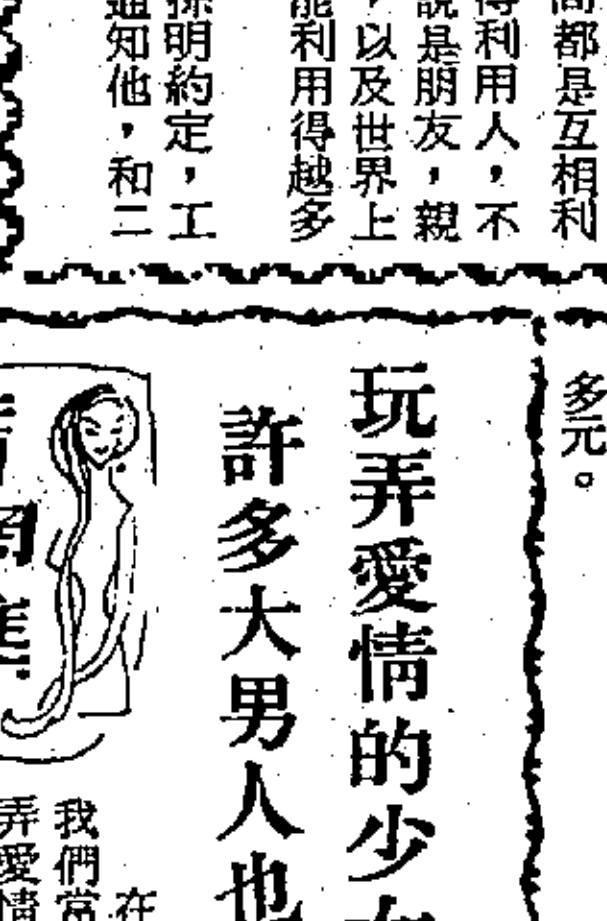 都是互相利
利用人，不
是朋友，親
，以及世界上
利用得越多
明約定，工
知他，和二
多元。
玩弄愛情的少
許多大男人也
我們當
弄愛情
在